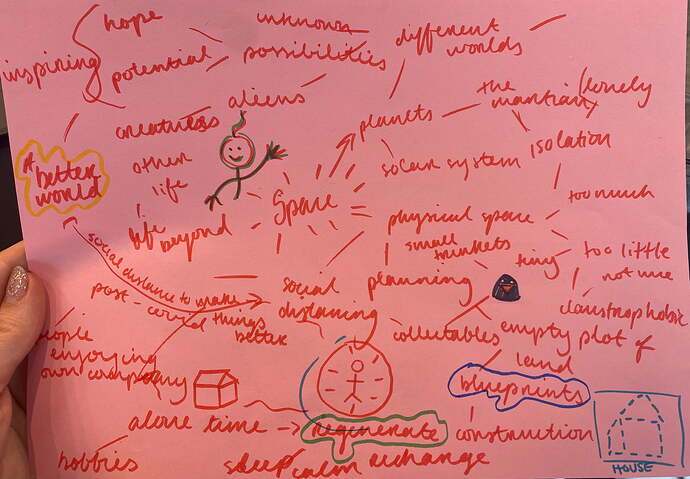 hope
unknown
different
worlds
inspiring
potential
possibilities
aliens
planets
the
martian
(lonely
creatures
isolation
solar system
other
life
A
better
world
Space
too much
life
beyond
physical space
small
trinkets
tiny
too little
not use
social
distancing
planning
claustrophobic
social distance to make
post-covid things
better
collectables
empty plot of
land
people
enjoying
own company
blueprints
alone time
regenerate
construction
hobbies
sleep
calm
recharge
HOUSE